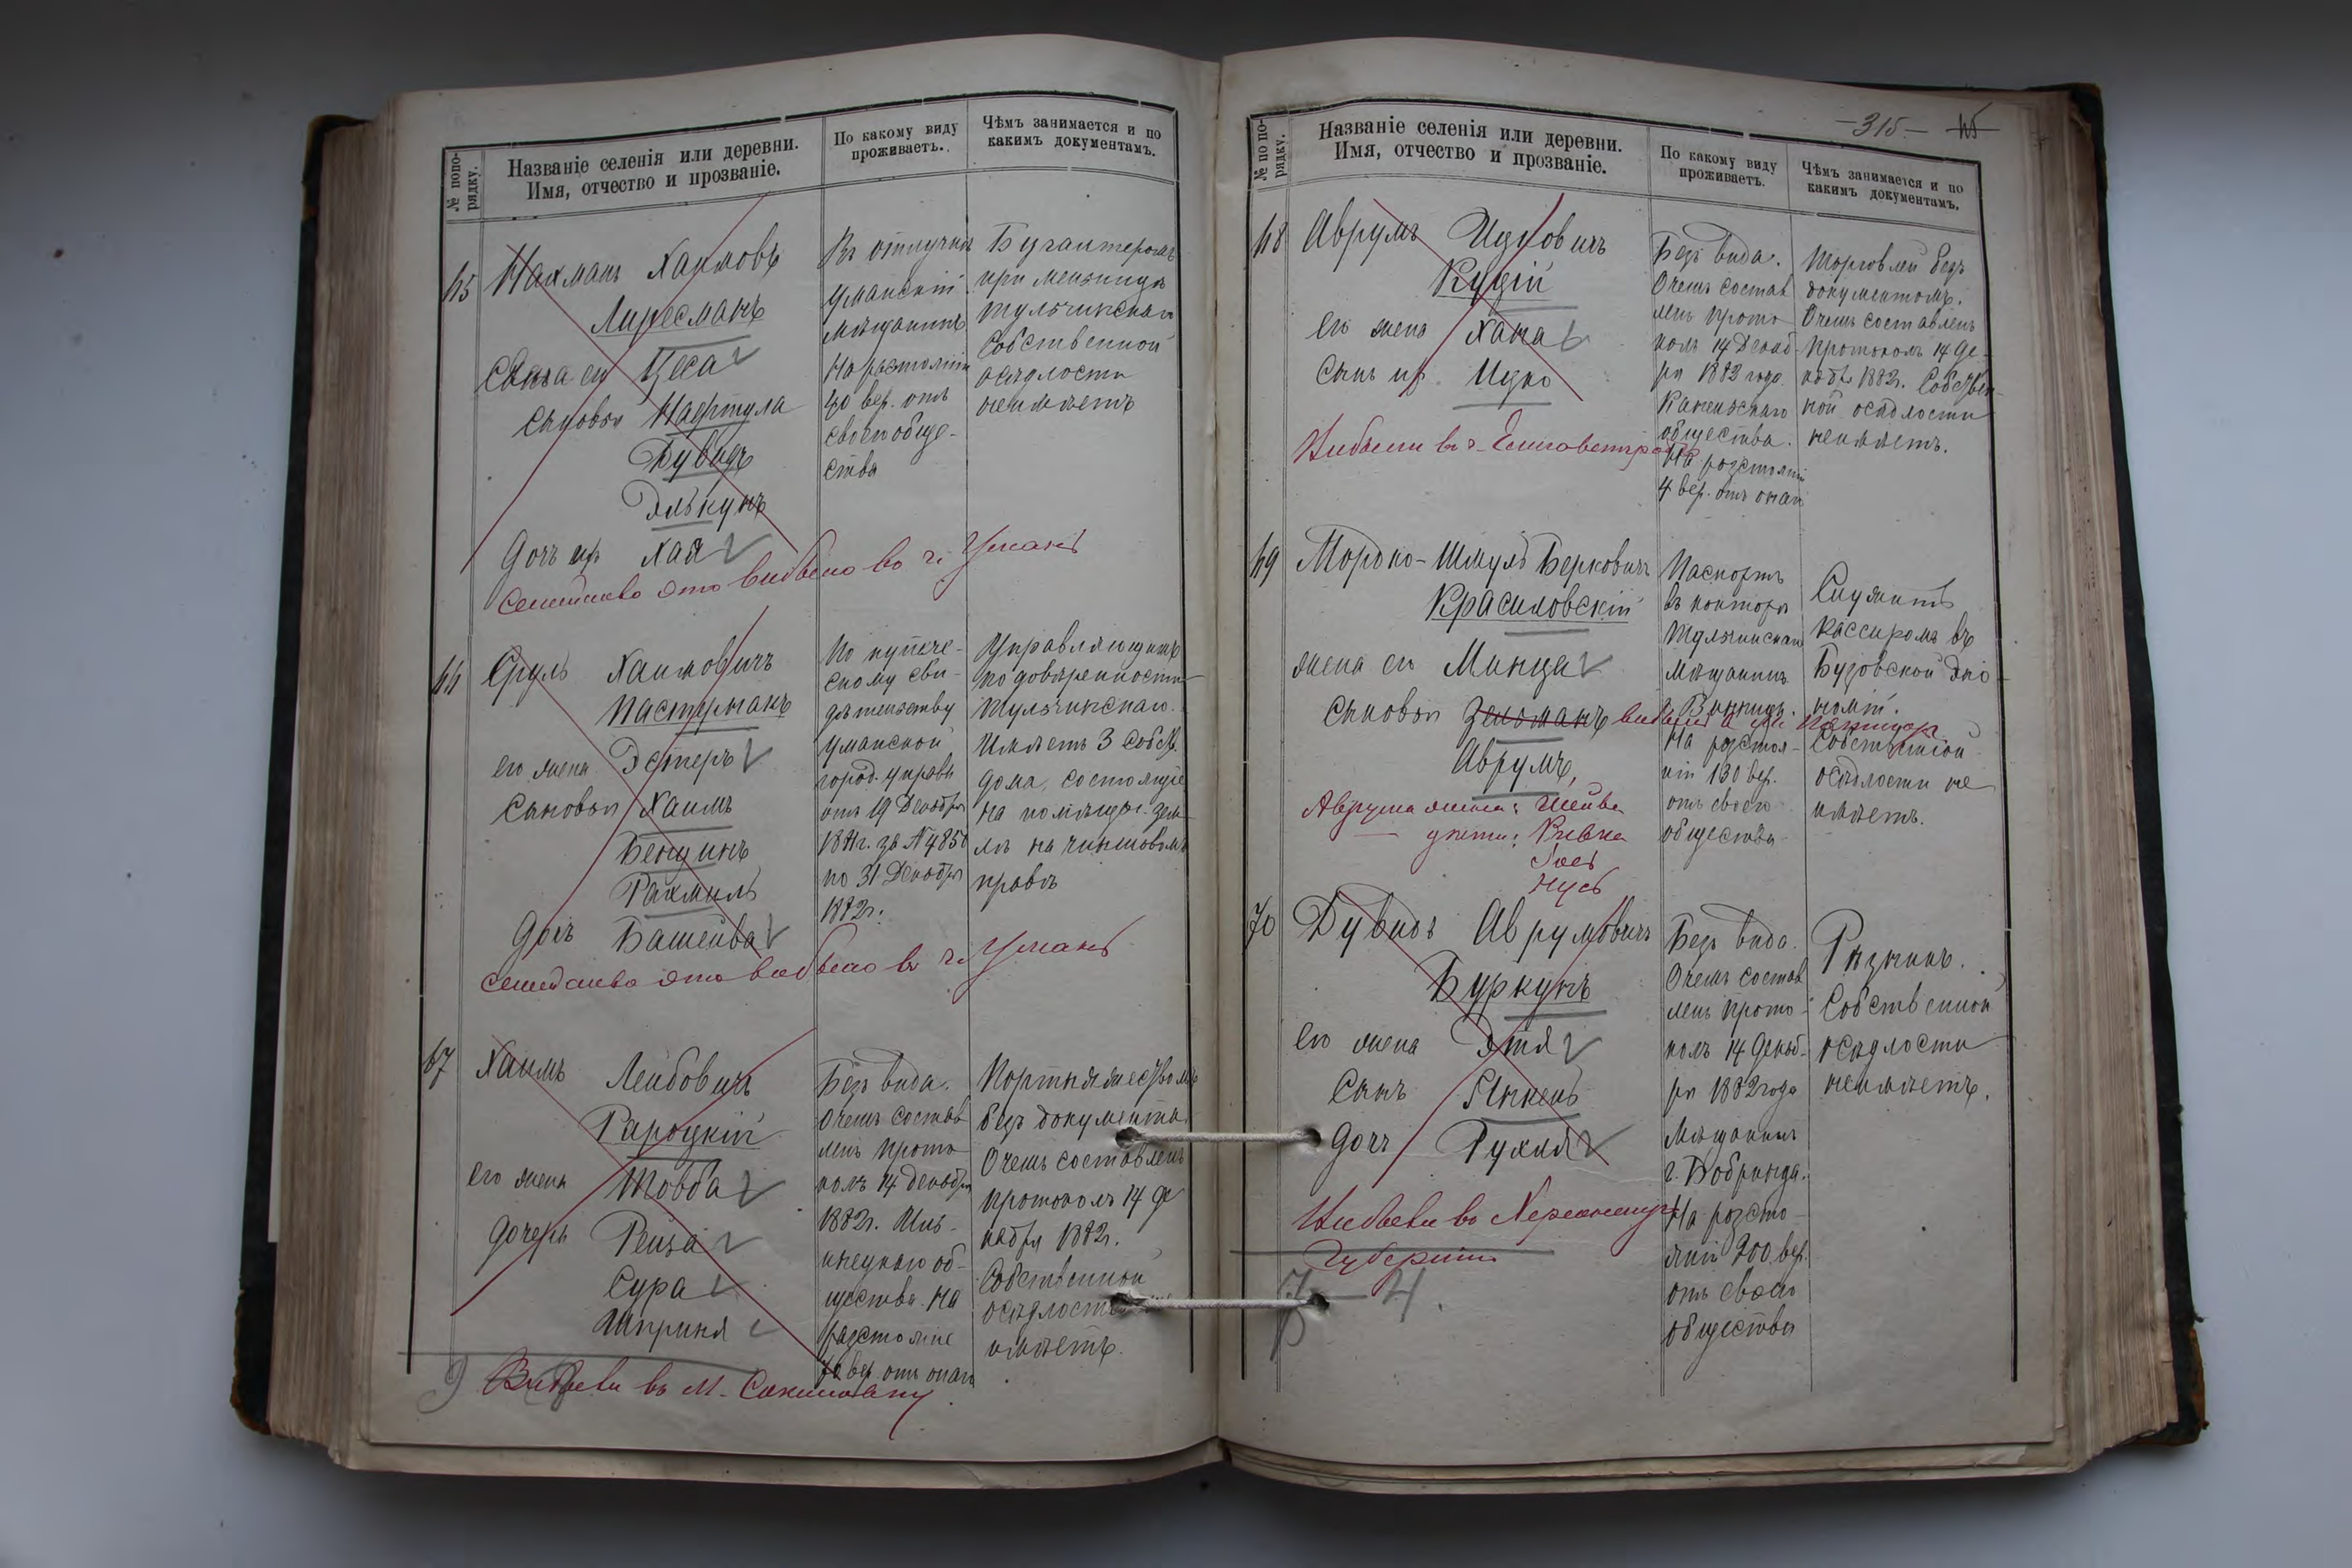 № попо-
рядку.
Названіе селенія или деревни.
Имя, отчество и прозваніе.
По какому виду
проживаетъ.
Чѣмъ занимается и по
какимъ документамъ.
65
Нахманъ Хаимовъ
Лиресманъ
его Цеса
Сыновья Нафтула
Дувидъ
Элькунъ
Дочь их Хая
Семейство это выбыло во г. Умань
Въ отлучкѣ
Уманскій
мѣщанинъ
На растояніи
40 вер. отъ
своего обще-
ства
Бугалтеромъ
при мельницѣ
Тульчинскаго
Собственной
осѣдлости
неимѣетъ
66
Сруль Хаимовичъ
Пастернакъ
его жена Эстеръ
Сыновья Хаимъ
Бенционъ
Рахмиль
Дочь Башейва
Семейство это выбыло въ г. Умань
По купече-
скому сви-
дѣтельству
уманской
город. управы
отъ 19 Декабря
1881г. за №4850
по 31 Декабря
1882г.
Управляющимъ
по довѣренности
Тульчинскаго.
Имѣетъ 3 собств.
дома, состоящіе
на помѣщич. зем-
лѣ на чиншовомъ
правѣ
67
Хаимъ Лейбовичъ
Рароцкій
его жена Товба
дочери Рейза
Сура
Шприня
Выбыли въ м. Соколовку
Безъ вида.
О чемъ состав
ленъ прото
колъ 14 декабря
1882г.
общества. На
разстояніе
вер. отъ онаго
Портняжествомъ
безъ документа.
О чемъ составленъ
протоколъ 14 де
кабря 1882г.
Собственной
осѣдлости не
имѣетъ.
-315-
№ по по-
рядку.
Названіе селенія или деревни.
Имя, отчество и прозваніе.
По какому виду
проживаетъ.
Чѣмъ занимается и по
какимъ документамъ.
68
Аврумъ Ицковичъ
Куцій
его жена Хана
Сынъ их Ицко
Выбыли въ г. Елисаветград
Безъ вида.
О чемъ состав
ленъ прото
колъ 14 Декаб
ря 1882 года.
общества.
На розстояніи
4 вер. отъ онаго
Торговлей безъ
документовъ.
О чемъ составленъ
протоколъ 14 де-
кабр. 1882г. Собствен-
ной осѣдлости
неимѣетъ.
69
Мордко-Шмуль Берковичъ
Красиловскій
жена его Минца
Сыновья Зельманъ
Аврумъ,
Аврума жена: Шейва
дѣти: Ривка
Нусь
Паспортъ
въ конторѣ
Тульчинскаго
Мѣщанинъ
г. Винницъ.
На розстоя-
ніи 130 вер.
отъ своего
общества
Служитъ
кассиромъ въ
Бузовской эко-
номіи.
Собственной
осѣдлости не
имѣетъ.
70
Дувидъ Аврумовичъ
Буркунъ
его жена Этя
Сынъ Янкель
Дочь Рухля
Выбыли въ Херсонскую
Губернію
Безъ вида.
О чемъ состав
ленъ прото-
колъ 14 декаб-
ря 1882 года
Мѣщанинъ
г. Бобринца.
На розсто-
яніи 200 вер.
отъ своего
общества
Рѣзникъ.
Собственной
осѣдлости
неимѣетъ.